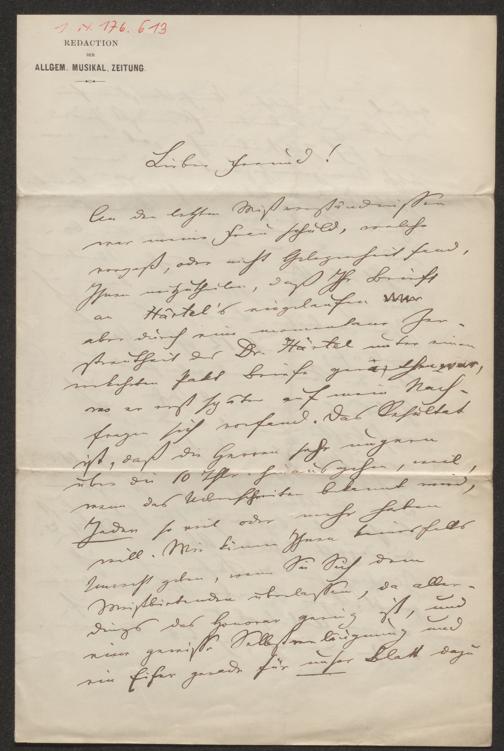 I. N. 176.613
REDACTION
DER
ALLGEM. MUSIKAL. ZEITUNG.
Lieber Freund!
An den letzten Mißverständnissen
war meine Frau schuld, welche
vergaß, oder nicht Gelegenheit fand,
Ihnen mitzutheilen, daß Ihr Brief
an Härtel's eingelaufen war
aber durch eine momentane Zer-
streutheit des Dr. Härtel unter einen
Pakt Briefe
wo er erst später auf mein Nach-
fragen sich vorfand. Das Resultat
ist, daß die Herren sehr ungern
über die 10 Thlr. hinausgehen, weil,
wenn das Ueberschreiten bekannt wird,
Jeder so viel oder mehr haben
will. Wir können Ihnen keinesfalls
Unrecht geben, wenn Sie Sich dem
Meistbietenden überlassen, da aller-
dings das Honorar gering ist, und
eine gewisse Selbstverläugnung und
ein Eifer gerade für unser Blatt dazu